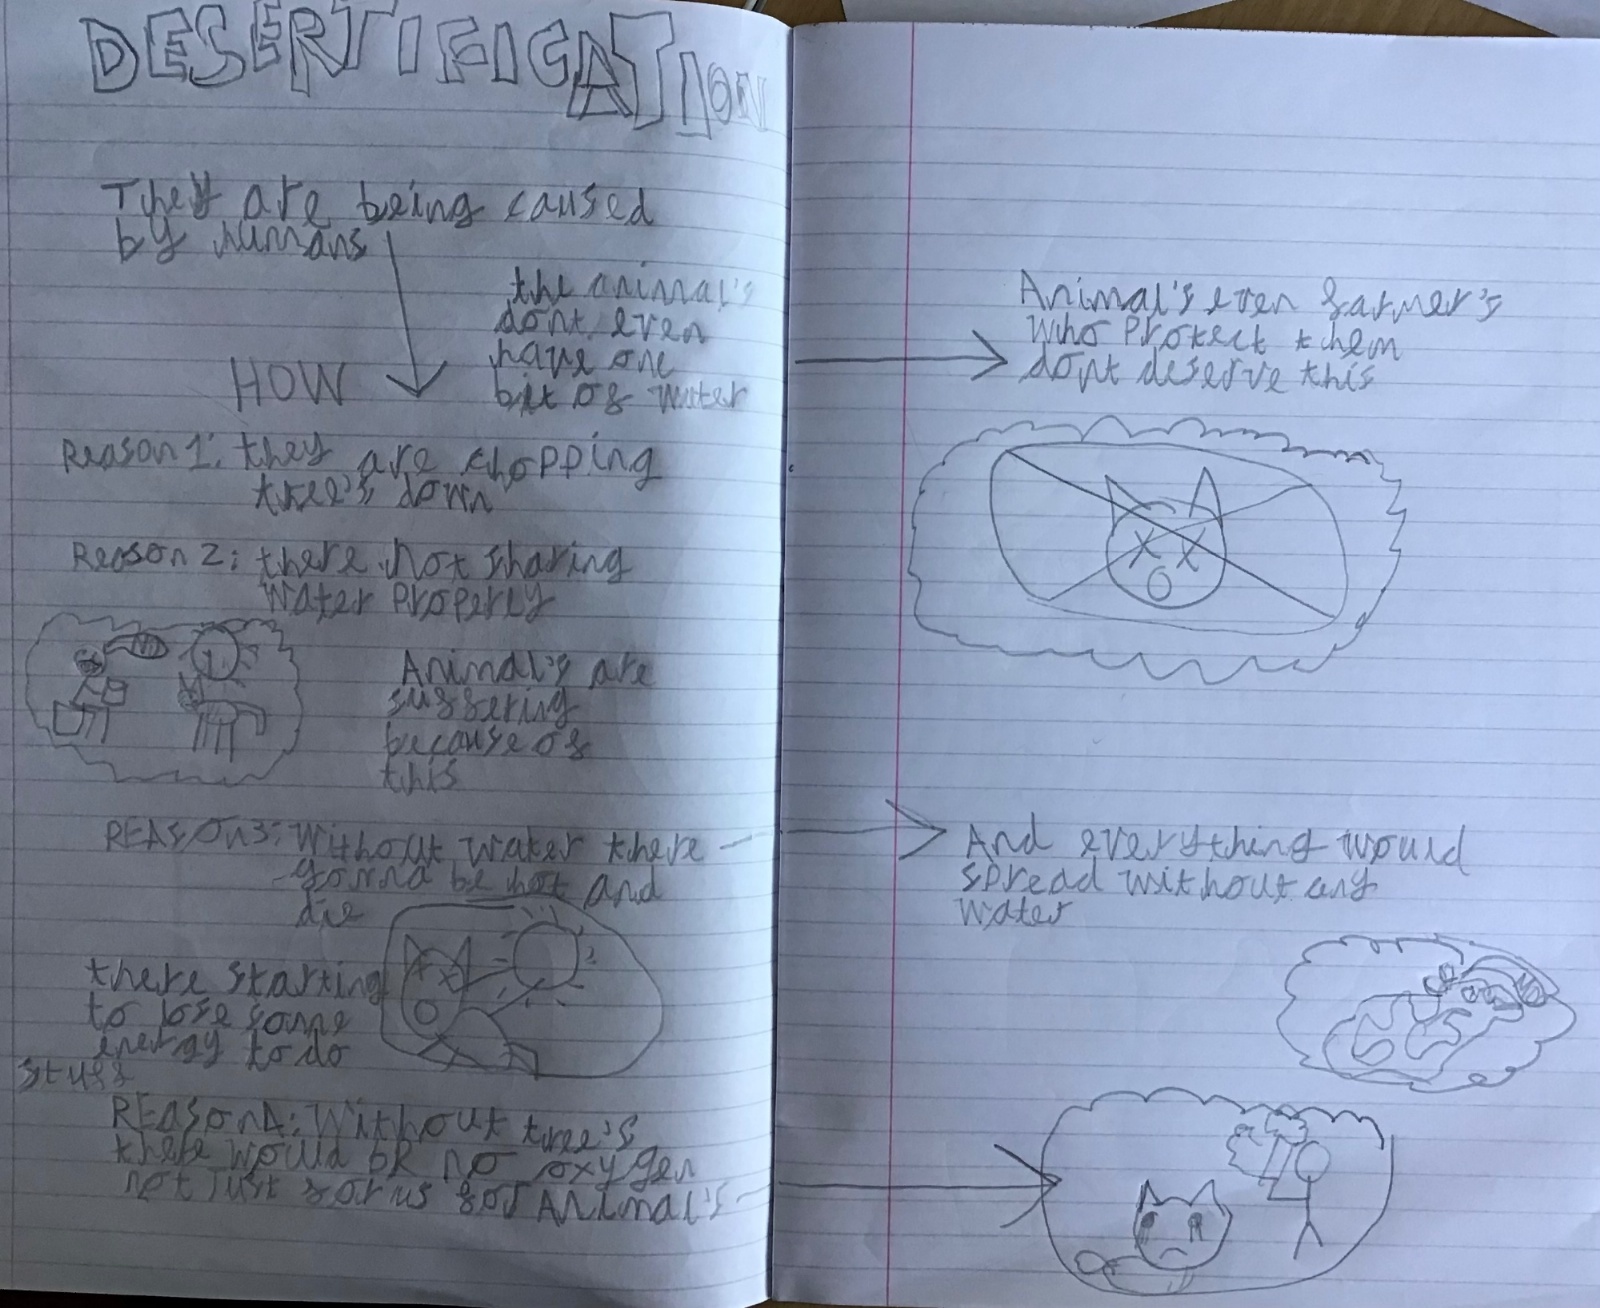 DESERTIFICATION
They are being caused
by humans
the animal's
dont even
have one
bit of water
HOW
Reason 1: they are chopping
tree's down
Reason 2: there not sharing
water properly
Animal's are
suffering
because of
this
REASON3: Without water there
gonna be hot and
die
there starting
to lose some
energy to do
stuff
REASON4: Without tree's
there would be no oxygen
not just for us for ANimal's
Animal's even farmer's
who protect them
dont deserve this
And everything would
spread without any
water